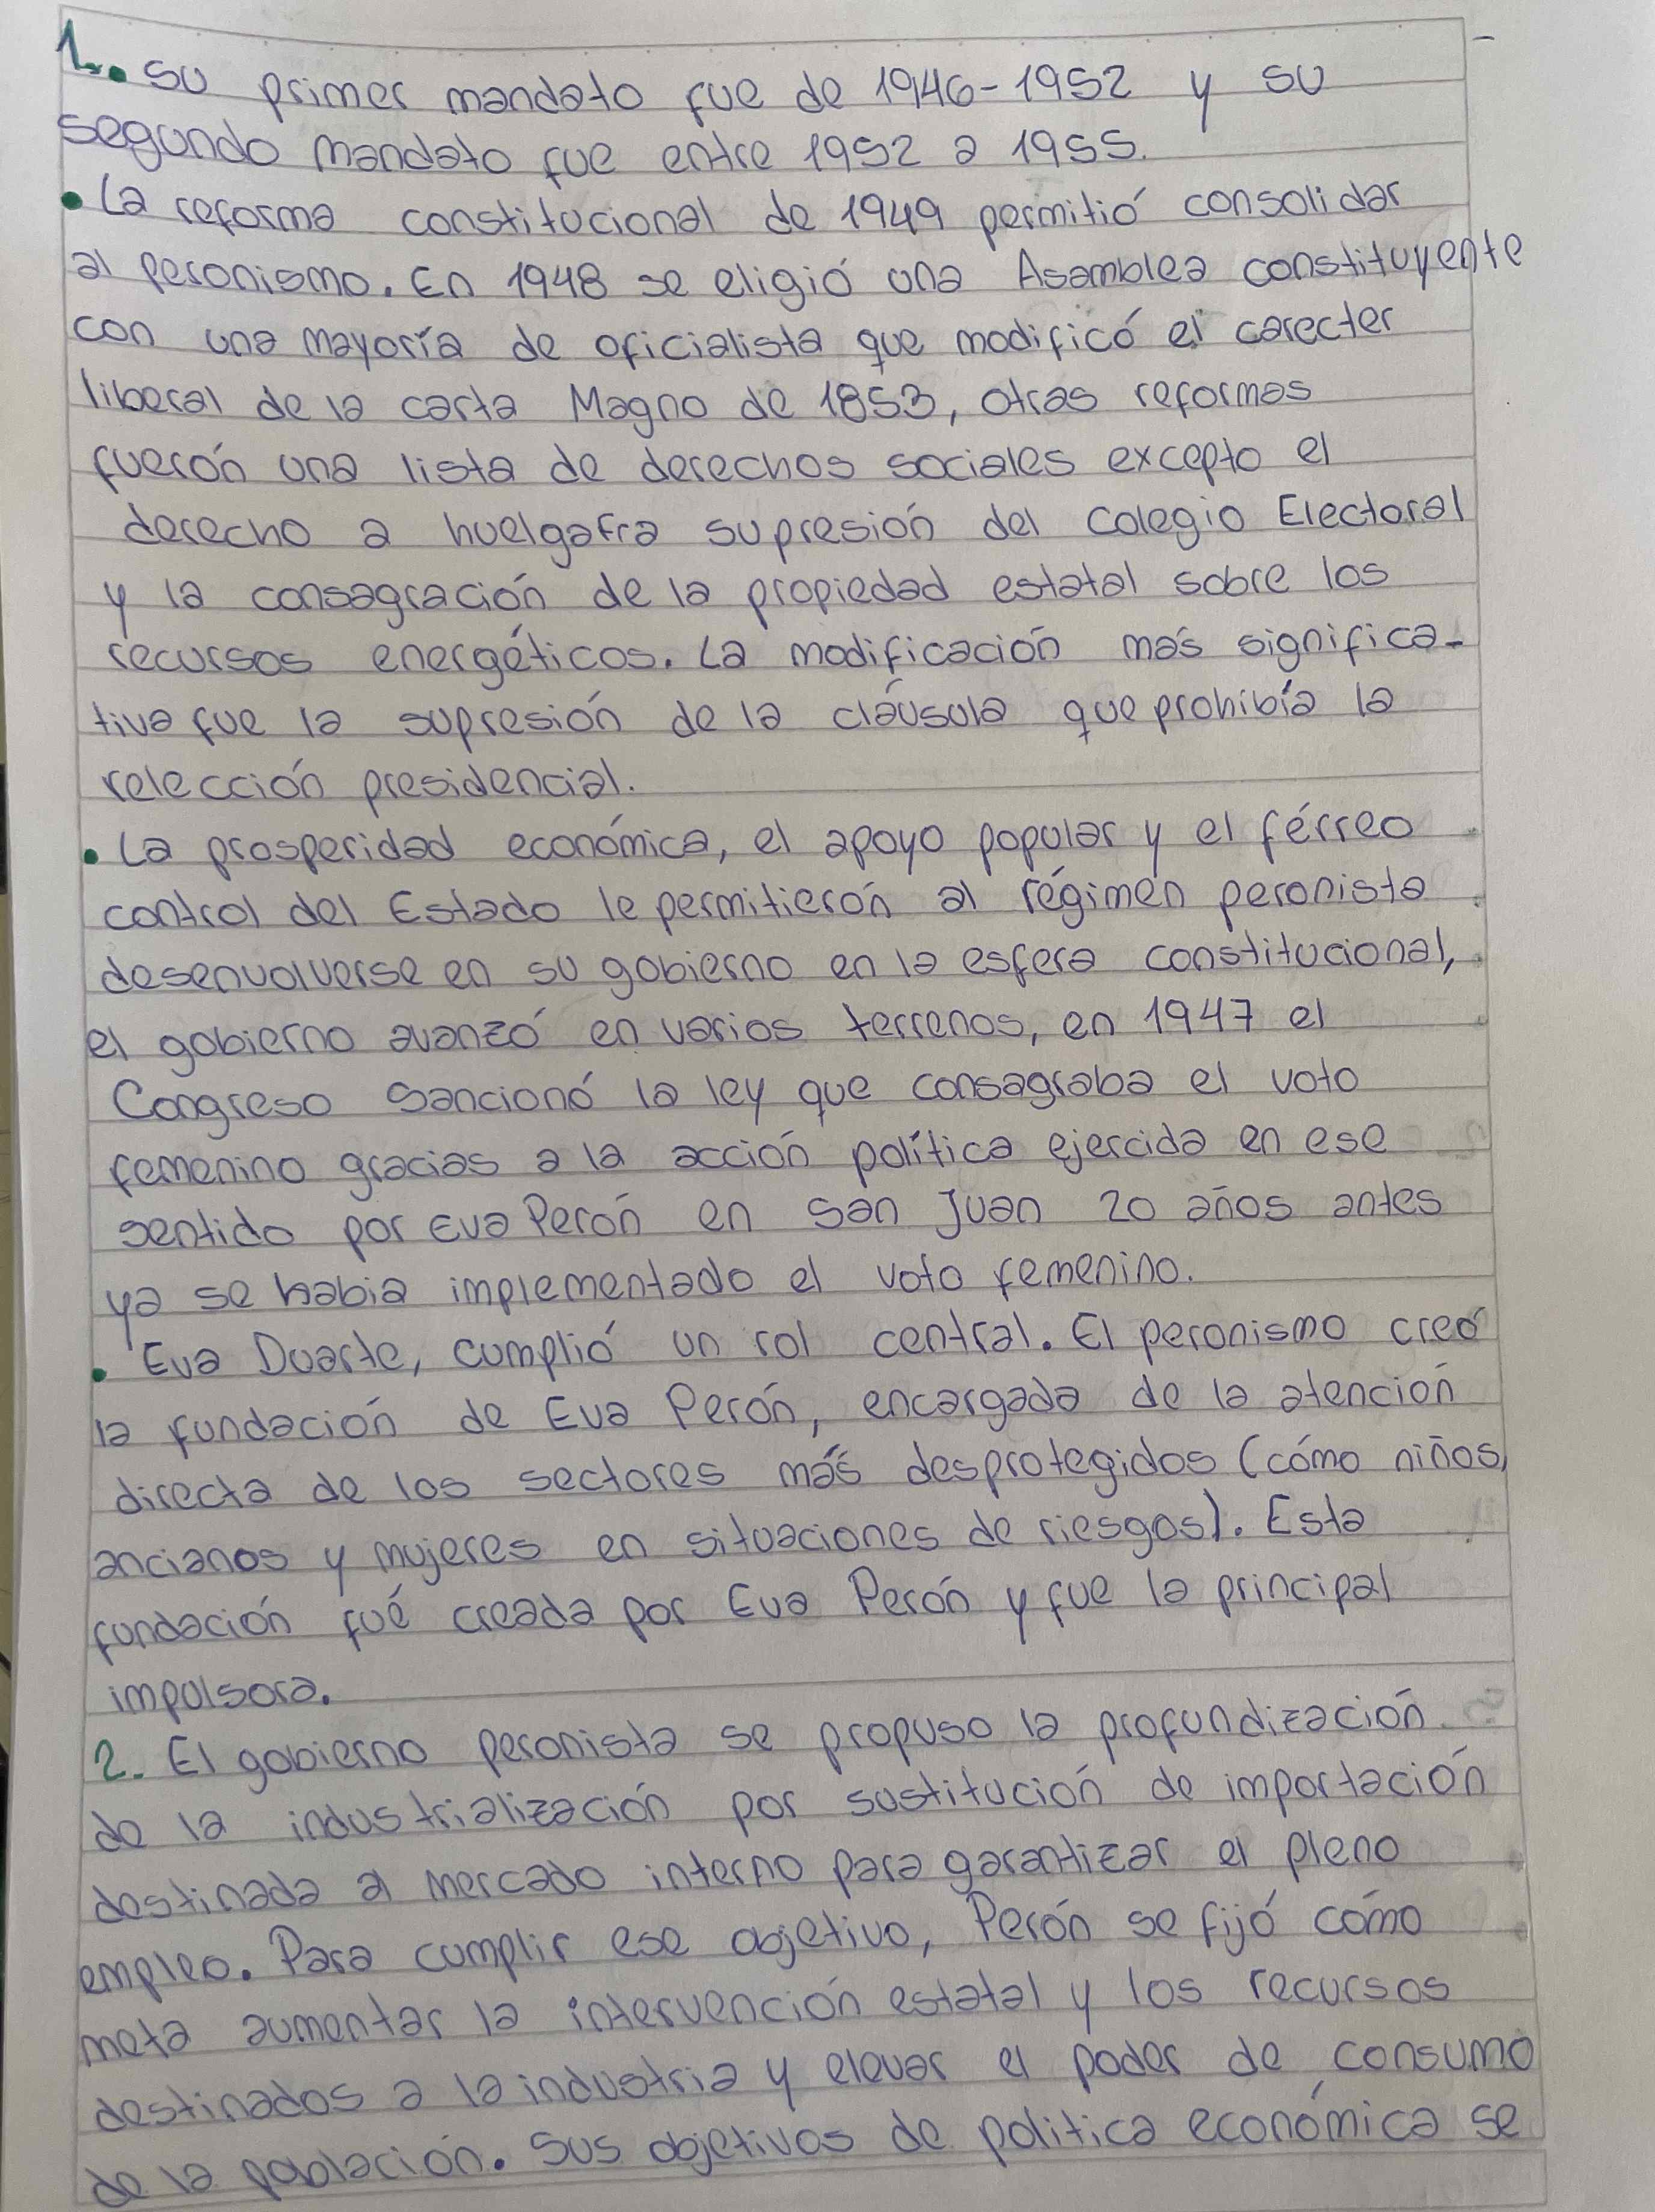 1. • Su primer mandato fue de 1946-1952 y su
segundo mandato fue entre 1952 a 1955.
• La reforma constitucional de 1949 permitió consolidar
al Peronismo. En 1948 se eligió una Asamblea constituyente
con una mayoría de oficialista que modificó el carecter
liberal de la carta Magno de 1853, otras reformas
fuerón una lista de derechos sociales excepto el
derecho a huelga, la supresión del Colegio Electoral
y la consagración de la propiedad estatal sobre los
recursos energéticos. La modificación más significa-
tiva fue la supresión de la cláusula que prohibía la
relección presidencial.
• La prosperidad económica, el apoyo popular y el férreo
control del Estado le permitierón al régimen peronista
desenvolverse en su gobierno en la esfera constitucional,
el gobierno avanzó en varios terrenos, en 1947 el
Congreso sancionó la ley que consagraba el voto
femenino gracias a la acción política ejercida en ese
sentido por Eva Perón en San Juan 20 años antes
ya se habia implementado el voto femenino.
• Eva Duarte, cumplió un rol central. El peronismo creó
la fundación de Eva Perón, encargada de la atención
directa de los sectores más desprotegidos (cómo niños,
ancianos y mujeres en situaciones de riesgos). Esta
fundación fué creada por Eva Perón y fue la principal
impulsora.
2. El gobierno peronista se propuso la profundización
de la industrialización por sustitución de importación
destinada al mercado interno para garantizar el pleno
empleo. Para cumplir ese objetivo, Perón se fijó cómo
meta aumentar la intervención estatal y los recursos
destinados a la industria y elevar el poder de consumo
de la población. Sus objetivos de política económica se